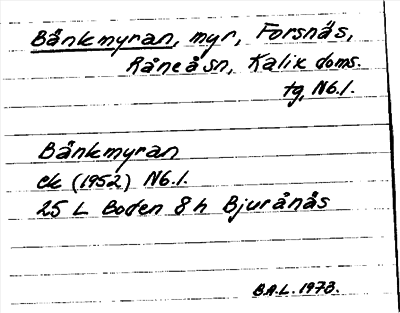 Bänkmyran, myr, Forsnäs,
Råneå sn, Kalix doms.
tg, Nb.l.
Bänkmyran
ek (1952) Nb.l.
25 L Boden 8 h Bjurånäs
B.A.L. 1973.